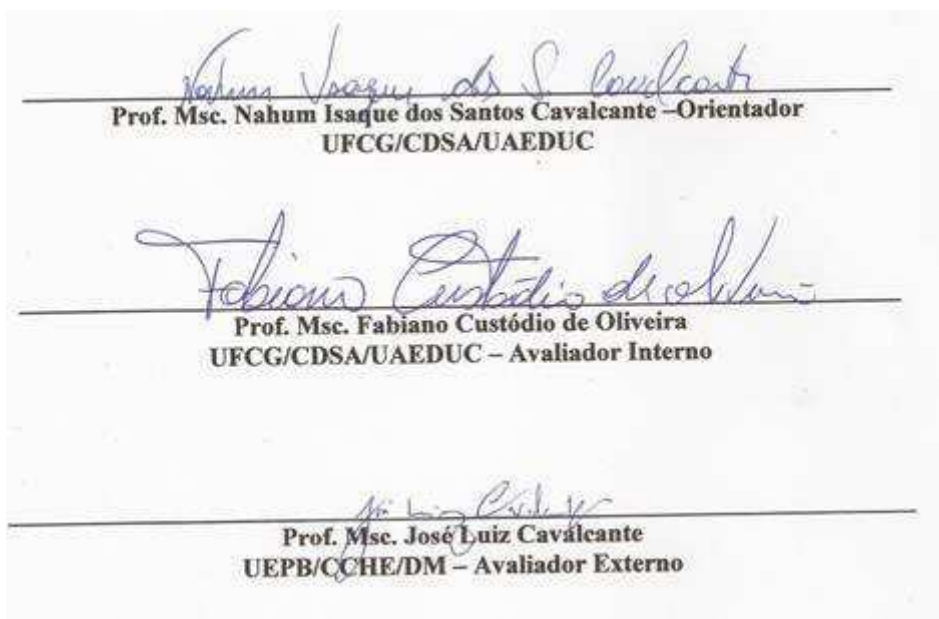 Nahum Isaque dos S. Cavalcanti
Prof. Msc. Nahum Isaque dos Santos Cavalcante –Orientador
UFCG/CDSA/UAEDUC
Fabiano Custódio de Oliveira
Prof. Msc. Fabiano Custódio de Oliveira
UFCG/CDSA/UAEDUC – Avaliador Interno
Prof. Msc. José Luiz Cavalcante
UEPB/CCHE/DM – Avaliador Externo